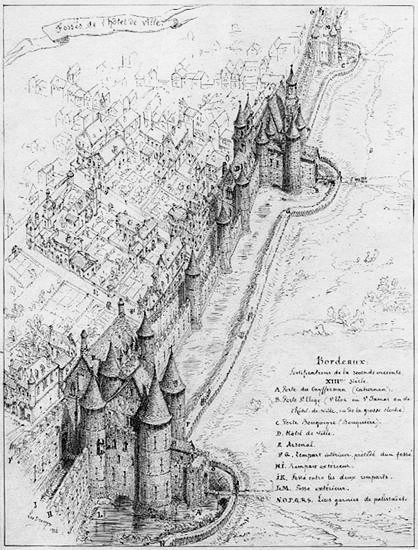 Fossés de l'hôtel de Ville
Bordeaux.
Fortifications de la seconde enceinte
XIIIme Siècle.
A. Porte du Cayffernan (Cahernan).
B. Porte St Eloge (St Eloi ou St James ou de
l'hôtel de Ville, ou de la grosse cloche.
C. Porte Bouqueyre (Bouquière).
D. Hôtel de Ville.
E. Arsenal.
F G. Rempart intérieur, protégé d'un fossé
H I. Rempart extérieur.
J K. Fossé entre les deux remparts.
L M. Fossé extérieur.
N.O.P.Q.R.S. Lices garnies de palissades.